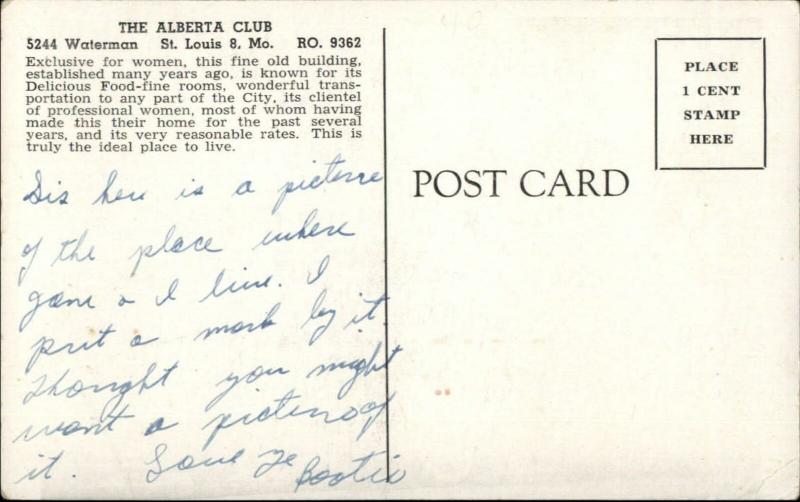 THE ALBERTA CLUB
5244 Waterman St. Louis 8, Mo. RO. 9362
Exclusive for women, this fine old building,
established many years ago, is known for its
Delicious Food-fine rooms, wonderful trans-
portation to any part of the City, its clientel
of professional women, most of whom having
made this their home for the past several
years, and its very reasonable rates. This is
truly the ideal place to live.
PLACE
1 CENT
STAMP
HERE
POST CARD
Sis here is a picture
of the place where
& I live. I
put a mark by it.
thought you might
want a picture of
it. Love
Bootie